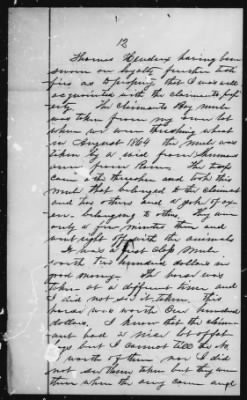 12
Thomas Hendrix having been
sworn on loyalty further testi
fies as to property that I was well
acquainted with the claimants prop
erty. The claimants Bay mule
was taken from my own lot
when we were threshing wheat
in August 1864 the mule was
taken by a raid from Sherman
from Rome. The troops
came to the thresher and took this
mule that belonged to the claimant
and two others and a yoke of ox
en belonging to others. They were
only a few minutes there and
went right off with the animals
It was a first class mule
worth two hundred dollars in
good money. The horse was
taken at a different time and
I did not see it taken. This
horse was worth One hundred
dollars. I know that the claim
ant had a nice lot of fat
hogs but I cannot tell the No.
worth of them nor I did
not see them taken but they were
there when the army came and